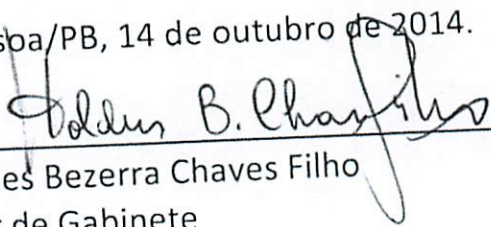 soa/PB, 14 de outubro de 2014.
B. Chaves Filho
es Bezerra Chaves Filho
de Gabinete